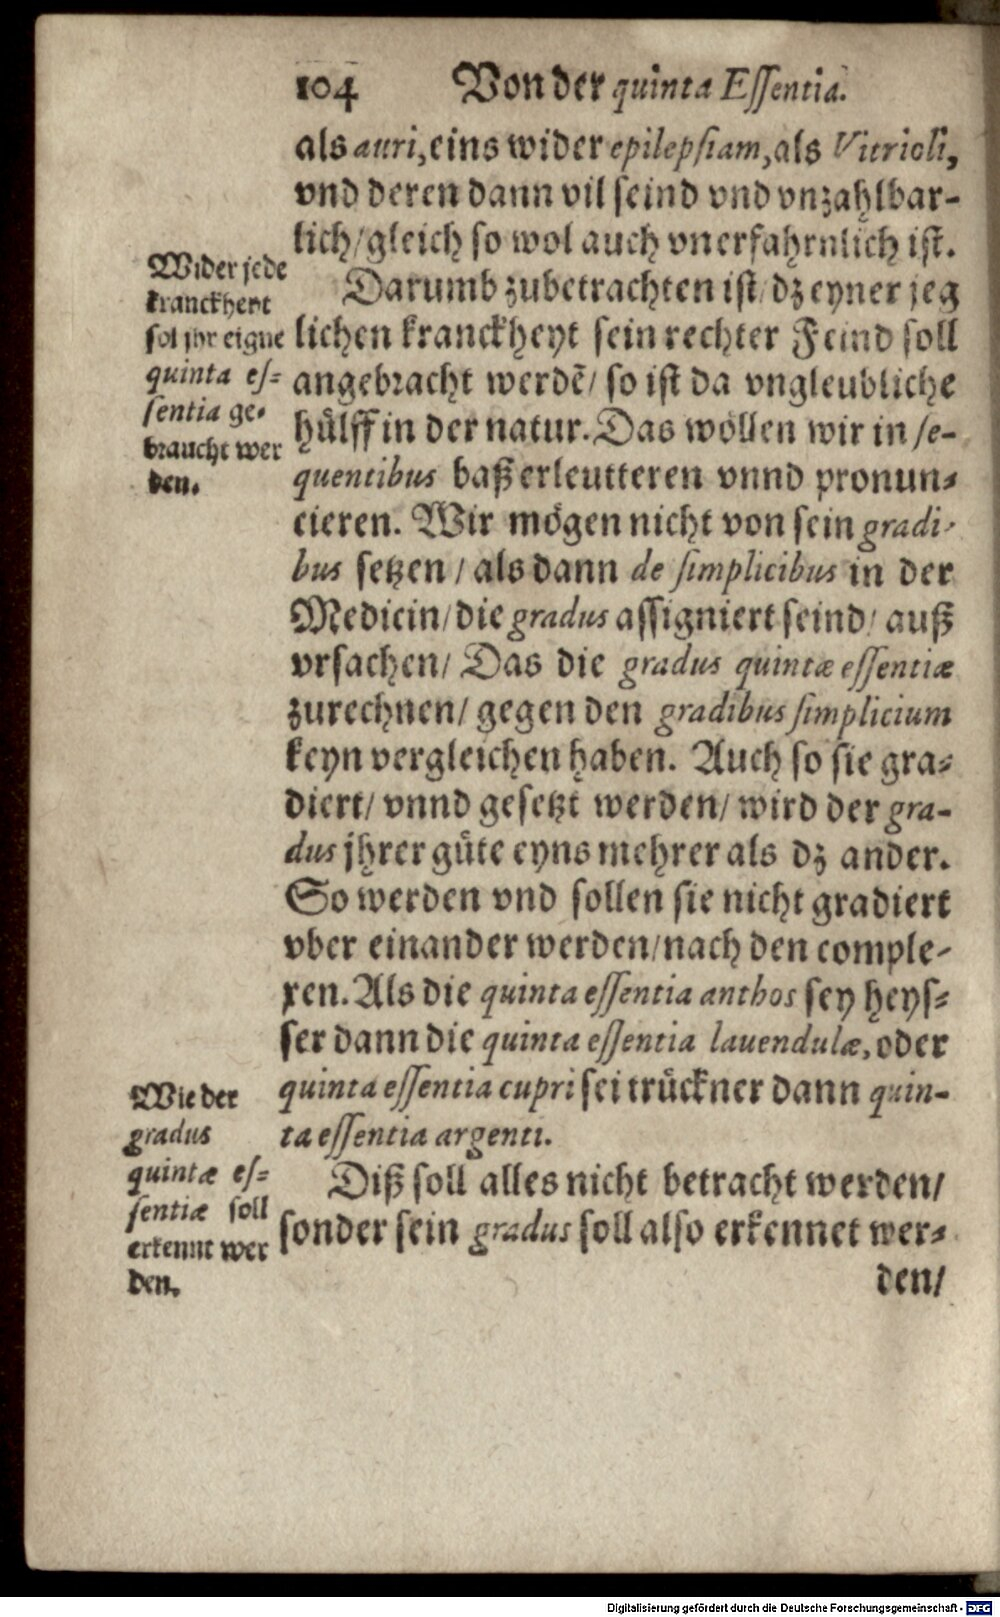 104 Von der quinta Eſſentia.
als auri, eins wider epilepſiam, als Vitrioli,
vnd deren dann vil ſeind vnd vnzahlbar-
lich/ gleich ſo wol auch vnerfahrnlich iſt.
Darumb zubetrachten iſt/ dz eyner jeg
lichen kranckheyt ſein rechter Feind ſoll
angebracht werdẽ/ ſo iſt da vngleubliche
hülff in der natur. Das wöllen wir in ſe-
quentibus baß erleutteren vnnd pronun-
cieren. Wir mögen nicht von ſein gradi-
bus ſetzen / als dann de ſimplicibus in der
Medicin/ die gradus aſſigniert ſeind/ auß
vrſachen/ Das die gradus quintæ eſſentiæ
zurechnen/ gegen den gradibus ſimplicium
keyn vergleichen haben. Auch ſo ſie gra-
diert/ vnnd geſetzt werden/ wird der gra-
dus jhrer güte eyns mehrer als dz ander.
So werden vnd ſollen ſie nicht gradiert
vber einander werden/ nach den comple-
xen. Als die quinta eſſentia anthos ſey heyſ-
ſer dann die quinta eſſentia lauendulæ, oder
quinta eſſentia cupri ſei trückner dann quin-
ta eſſentia argenti.
Diß ſoll alles nicht betracht werden/
ſonder ſein gradus ſoll alſo erkennet wer-
den/
Wider jede
kranckheyt
ſol jhr eigne
quinta eſ-
ſentia ge-
braucht wer
den.
Wie der
gradus
quintæ eſ-
ſentiæ ſoll
erkennt wer
den.
Digitalisierung gefördert durch die Deutsche Forschungsgemeinschaft - DFG